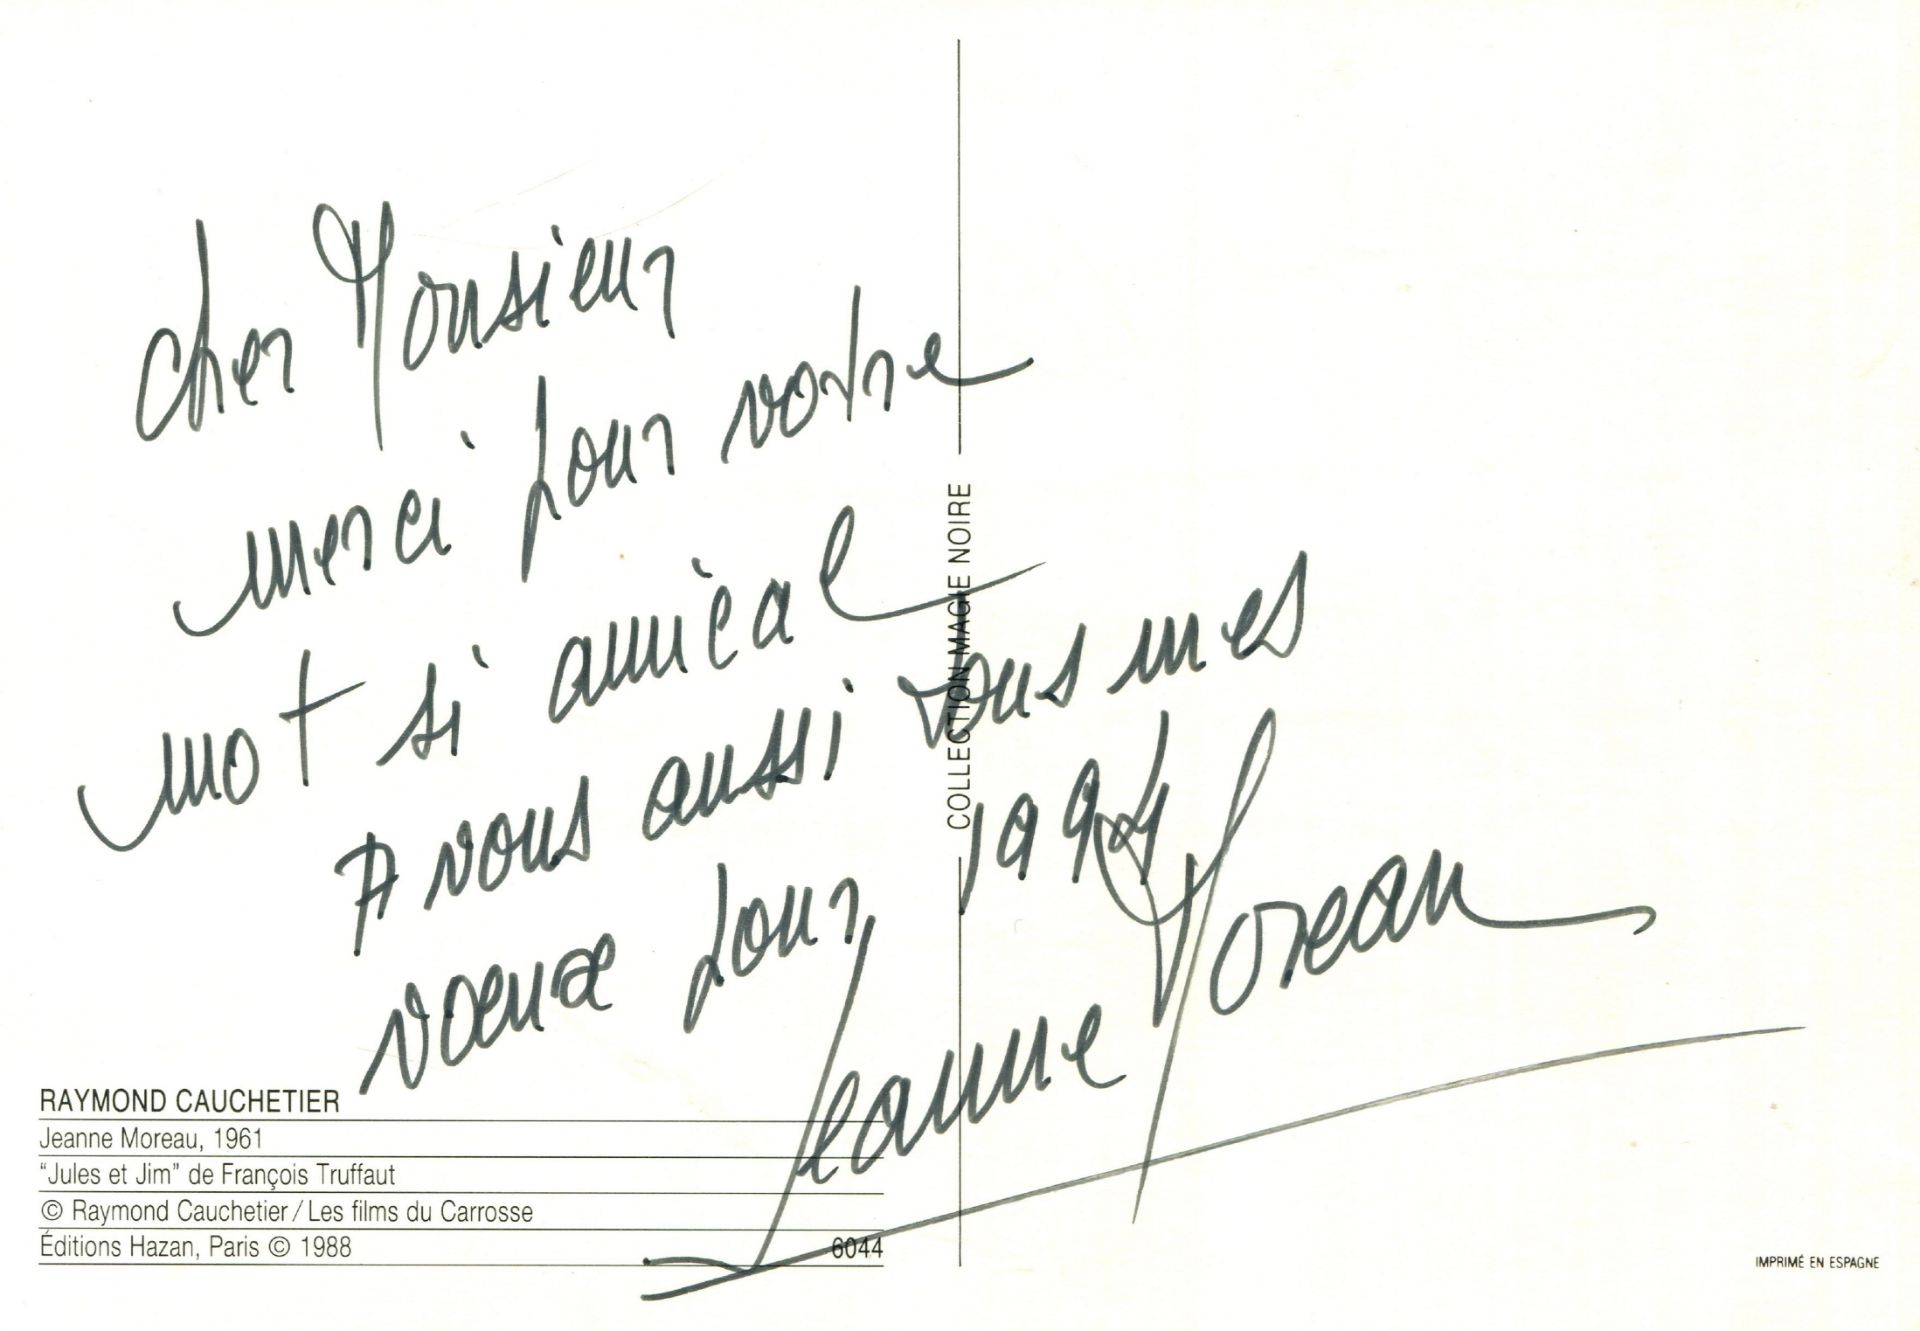 Cher Monsieur
merci pour votre
mot si amical
A vous aussi tous mes
voeux pour 1994
Jeanne Moreau
COLLECTION MAGIE NOIRE
RAYMOND CAUCHETIER
Jeanne Moreau, 1961
“Jules et Jim” de François Truffaut
© Raymond Cauchetier / Les films du Carrosse
Éditions Hazan, Paris © 1988 6044
IMPRIMÉ EN ESPAGNE